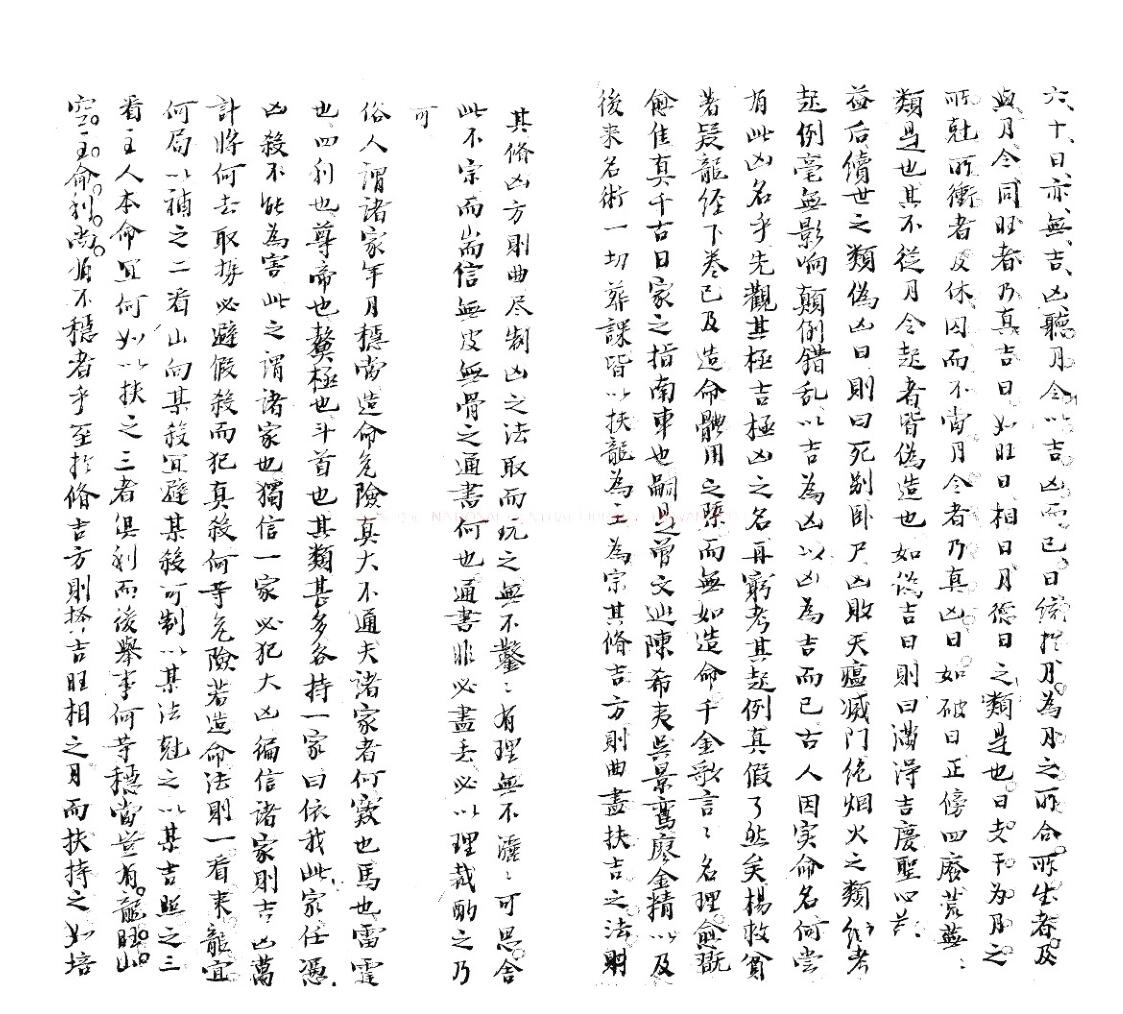 六十日亦無吉凶聽月令以吉凶而已日縂捴月為月之所合所生者及
與月令同旺者乃真吉日如旺日相日月德日之類是也日支干為月之
所尅所衝者及休囚而不當月令者乃真凶日如破日正傍四廢荒蕪
類是也其不從月令起者皆偽造也如偽吉日則曰滿淂吉慶聖心
益后續世之類偽凶日則曰死別卧尸凶敗天瘟滅門絶烟火之類細考
起例毫無影响顛倒錯乱以吉為凶以凶為吉而已古人因实命名何嘗
有此凶名乎先觀其極吉極凶之名再窮考其起例真假了然矣楊救貧
著疑龍经下卷已及造命體用之槩而無如造命千金歌言〻名理愈翫
愈佳真千古日家之指南車也嗣是曾文辿陳希夷吳景鸞廖金精以及
後来名術一切葬課皆以扶龍為主為宗其脩吉方則曲盡扶吉之法
其脩凶方則曲尽制凶之法取而玩之無不鑿〻有理無不 〻可思舍
此不宗而耑信無皮無骨之通書何也通書非必盡丢必以理裁酌之乃
可
俗人謂諸家年月穩當造命危險真大不通夫諸家者何竅也馬也雷霆
也四利也尊帝也鰲極也斗首也其類甚多各持一家曰依我此家任憑
凶殺不能為害此之謂諸家也獨信一家必犯大凶徧信諸家則吉凶萬
計將何去取拆必避假殺而犯真殺何等危險若造命法則一看来龍宜
何局以補之二看山向某殺宜避某殺可制以某法尅之以某吉照之三
看主人本命宜何如以扶之三者俱利而後舉事何等穩當豈有龍旺山
空主命利尚 不穩者乎至扵脩吉方則 吉旺相之月而扶持之如培